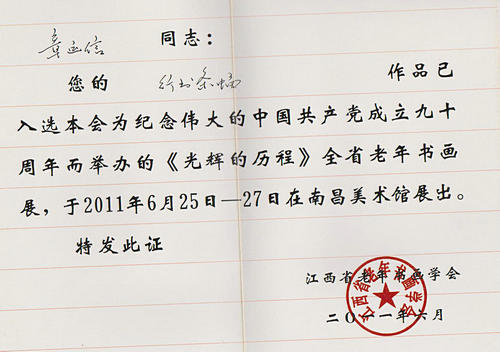 同志：
您的 行书条幅 作品已
入选本会为纪念伟大的中国共产党成立九十
周年而举办的《光辉的历程》全省老年书画
展，于2011年6月25日—27日在南昌美术馆展出。
特发此证
江西省老年书画学会
二〇一一年六月
江西省老年书画学会